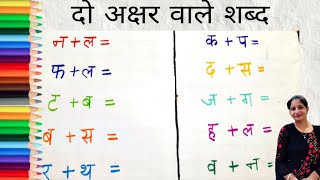 दो अक्षर वाले शब्द
न + ल =
फ + ल =
ट + ब =
ब + स =
र + थ =
क + प =
द + स =
ज + ग =
ह + ल =
व + न =